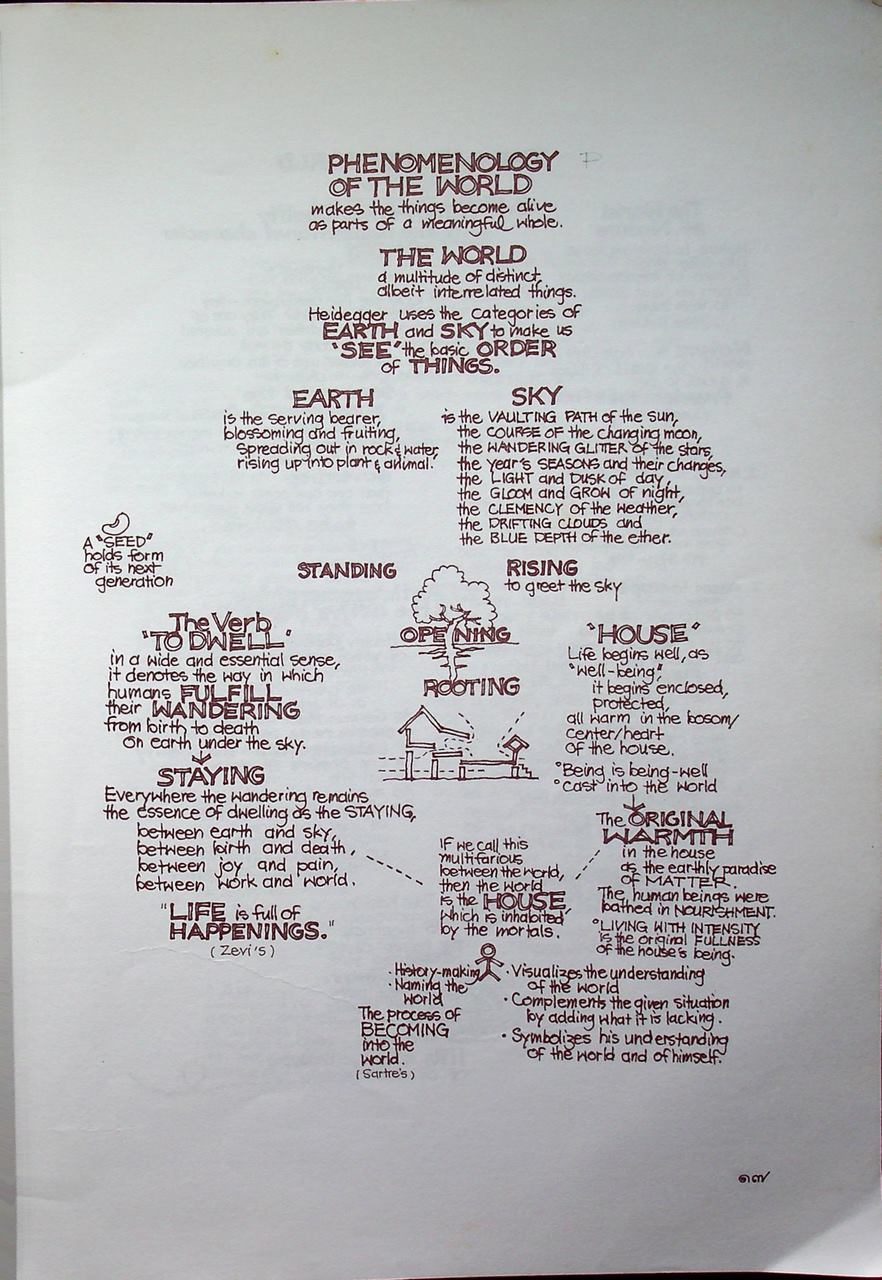 PHENOMENOLOGY
OF THE WORLD
makes the things become alive
as parts of a meaningful whole.
THE WORLD
a multitude of distinct,
albeit interrelated things.
Heidegger uses the categories of
EARTH and SKY to make us
"SEE" the basic ORDER
of THINGS.
EARTH
is the serving bearer,
blossoming and fruiting,
spreading out in rock & water,
rising up into plant & animal.
SKY
is the VAULTING PATH of the sun,
the COURSE OF the changing moon,
the WANDERING GLITTER of the stars,
the year's SEASONS and their changes,
the LIGHT and DUSK of day,
the GLOOM and GROW of night,
the CLEMENCY of the weather,
the DRIFTING CLOUDS and
the BLUE DEPTH of the ether.
A "SEED"
holds form
of its next
generation
STANDING
RISING
to greet the sky
OPENING
ROOTING
The Verb
"TO DWELL"
in a wide and essential sense,
it denotes the way in which
humans FULFILL
their WANDERING
from birth to death
on earth under the sky.
STAYING
Everywhere the wandering remains
the essence of dwelling as the STAYING,
between earth and sky,
between birth and death,
between joy and pain,
between work and world.
"LIFE is full of
HAPPENINGS."
(Zevi's)
"HOUSE"
Life begins well, as
"well-being",
it begins enclosed,
protected,
all warm in the bosom/
center/heart
of the house.
"Being is being-well
"cast into the world
The ORIGINAL
WARMTH
in the house
as the earthly paradise
of MATTER.
The human beings were
bathed in NOURISHMENT.
"LIVING WITH INTENSITY
is the original FULLNESS
of the house's being.
IF we call this
multifarious
between the world,
then the world
is the HOUSE,
which is inhabited
by the mortals.
· History-making
· Naming the
world
The process of
BECOMING
into the
world.
(Sartre's)
· Visualizes the understanding
of the world
· Complements the given situation
by adding what it is lacking.
· Symbolizes his understanding
of the world and of himself.
๑๗